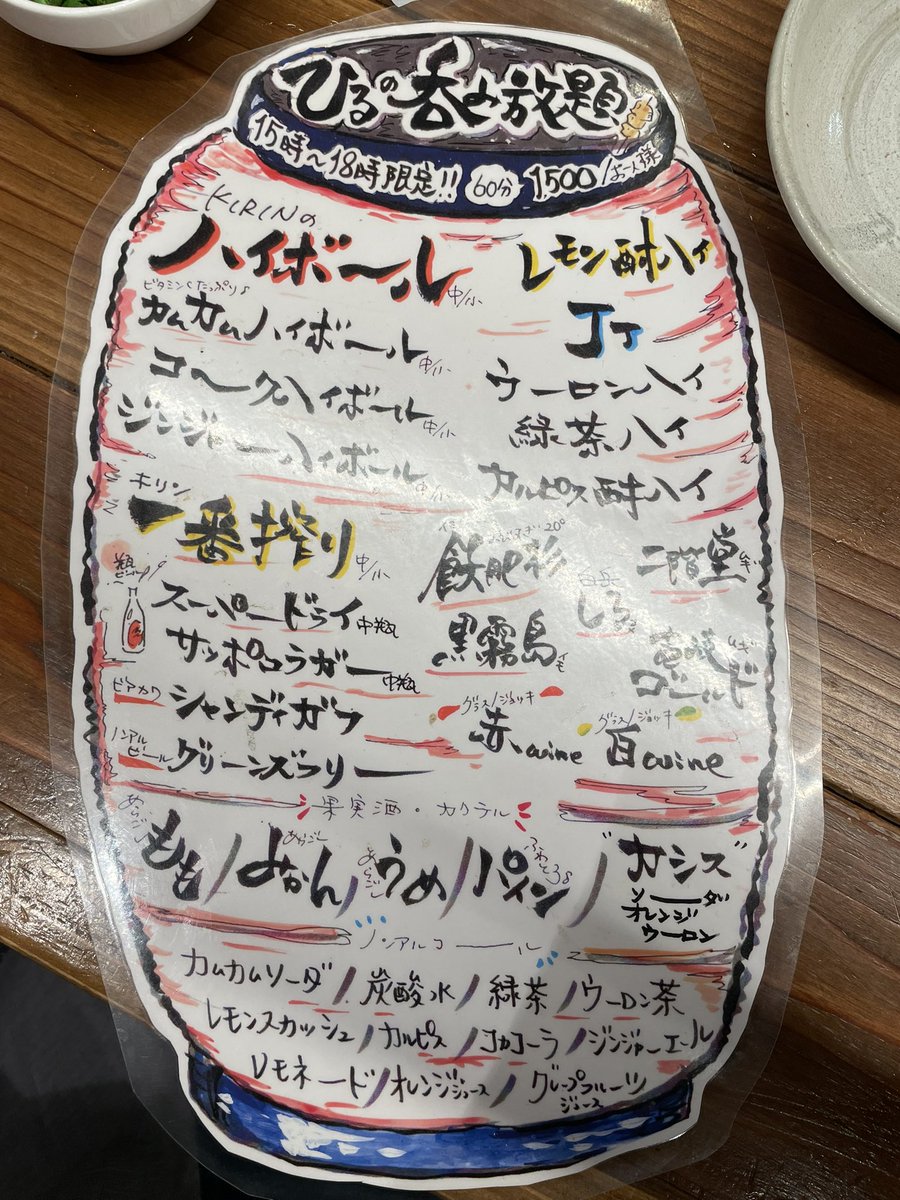 ひるの呑み放題
15時～18時限定!! 60分 1500/お一人様
KIRINの
ハイボール 中/小
ビタミンCたっぷり♪
カムカムハイボール 中/小
コークハイボール 中/小
ジンジャーハイボール 中/小
レモン酎ハイ
JJ
ウーロンハイ
緑茶ハイ
カルピス酎ハイ
キリン
一番搾り 中/小
瓶ビール
スーパードライ 中瓶
サッポロラガー 中瓶
ビアカク シャンディガフ
ノンアルビール グリーンズフリー
おびすぎ 20°
飫肥杉
黒霧島 イモ
しろ
二階堂
ゴールド むぎ
グラス/ジョッキ
赤wine
グラス/ジョッキ
白wine
果実酒・カクテル
あらごし もも/あらごし みかん/あらごし うめ/パイン/カシス
ソーダ
オレンジ
ウーロン
ノンアルコール
カムカムソーダ/炭酸水/緑茶/ウーロン茶
レモンスカッシュ/カルピス/コカコーラ/ジンジャーエール
レモネード/オレンジジュース/グレープフルーツジュース